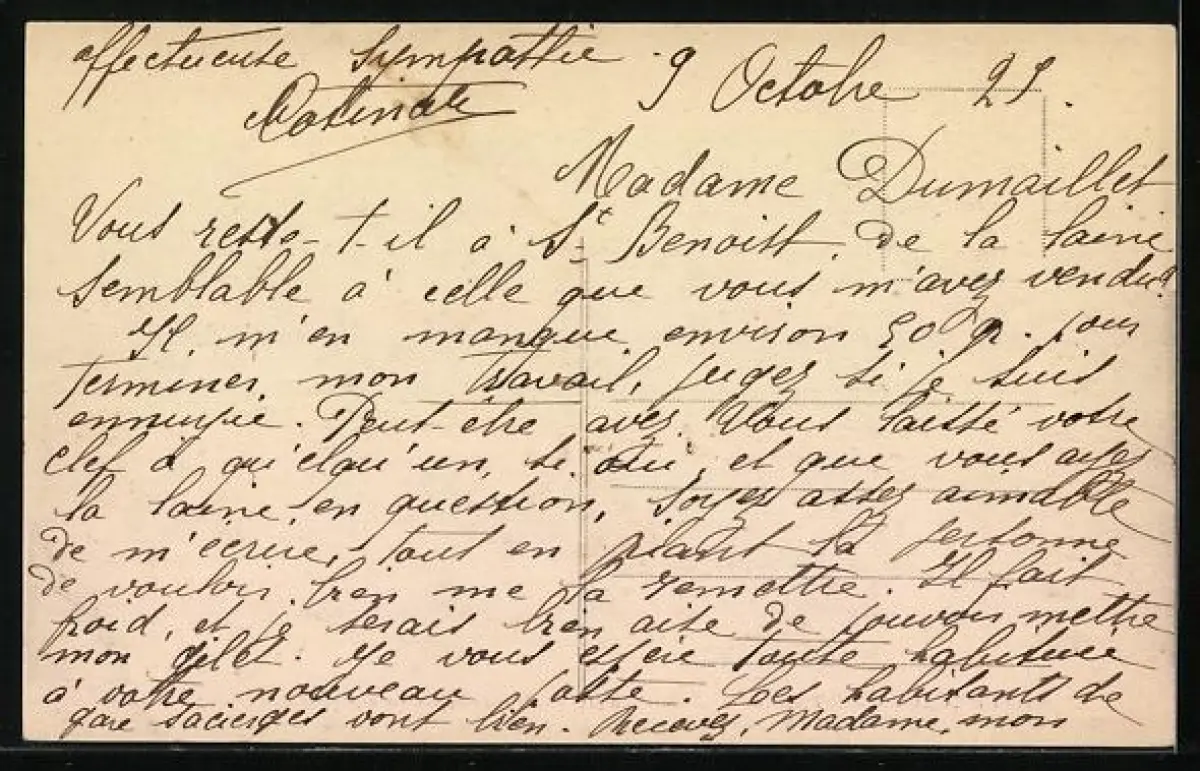 affectueuse sympathie
9 Octobre 25.
Madame Dumaillet
Vous reste-t-il à St Benoist de la laine
semblable à celle que vous m'avez vendue
Il m'en manque environ 50 g. pour
terminer mon travail, jugez si je suis
ennuyée. Peut-être avez vous laissé votre
clef à quelqu'un, si oui, et que vous ayez
la laine en question, soyez assez aimable
de m'écrire, tout en priant la personne
de vouloir bien me la remettre. Il fait
froid, et je serais bien aise de pouvoir mettre
mon gilet. Je vous espère toute habituée
à votre nouveau poste. Les habitants de
gare vont bien. Recevez, Madame, mon